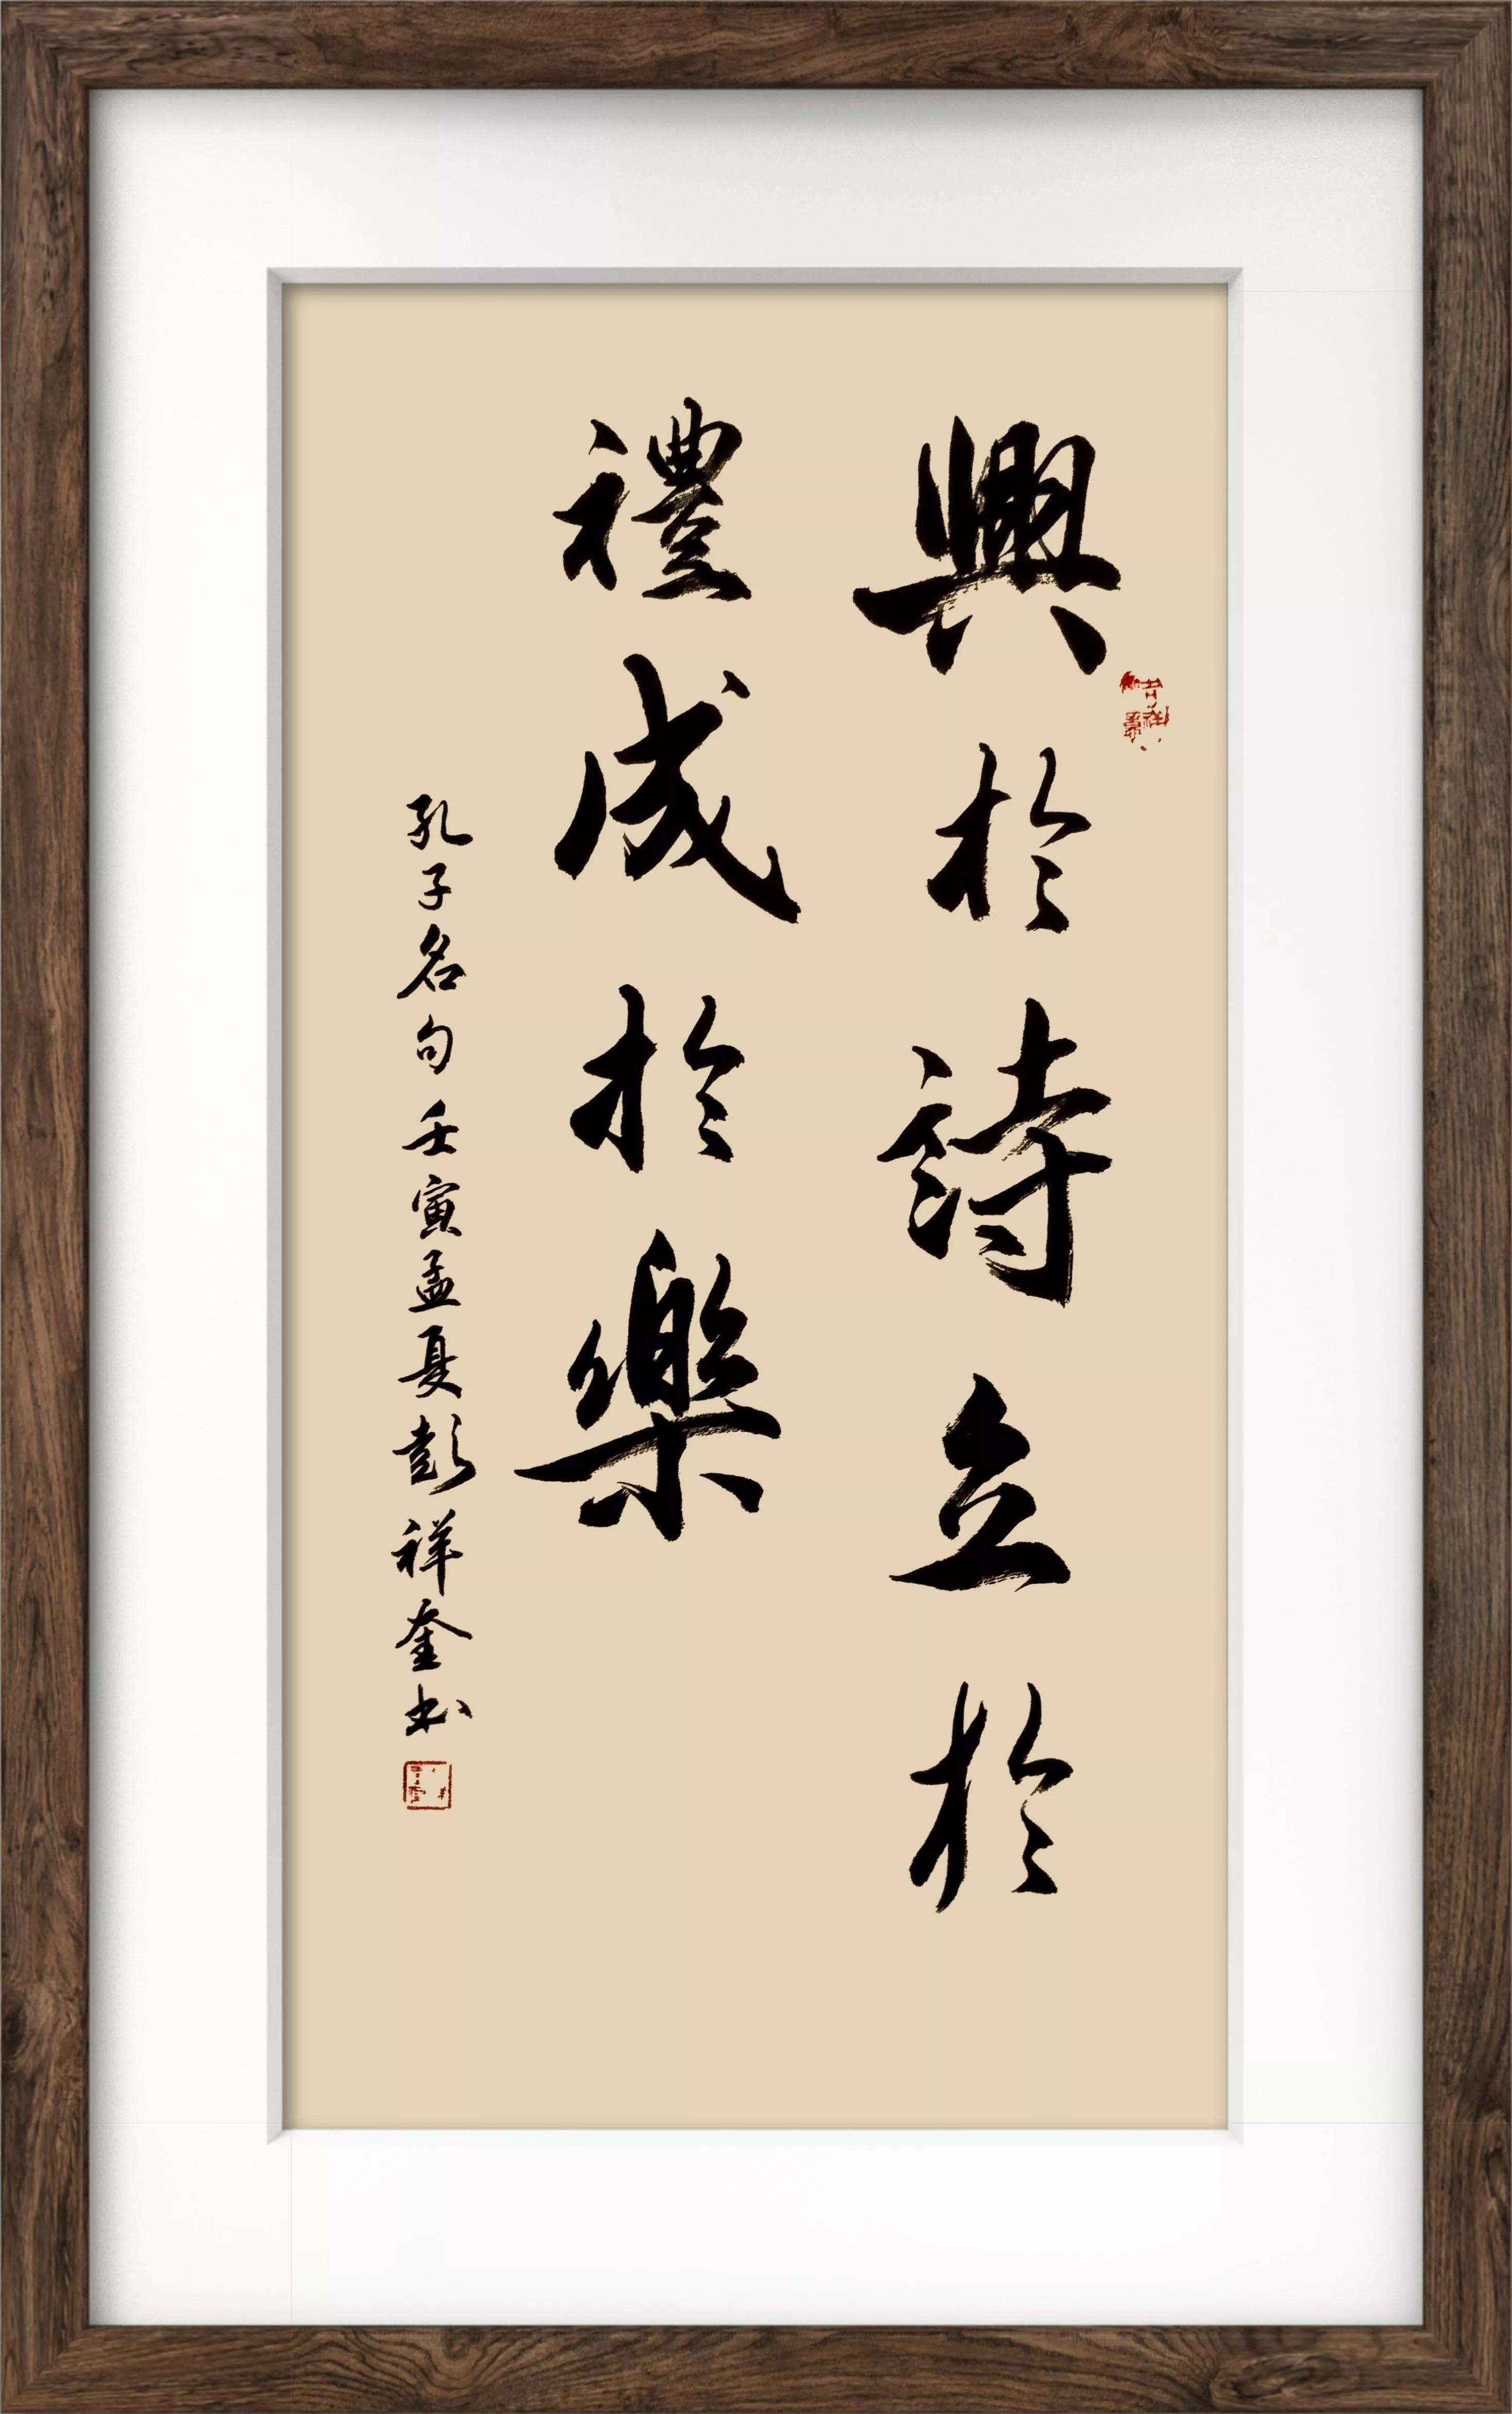 興於詩立於
禮成於樂
孔子名句壬寅孟夏彭祥奎书